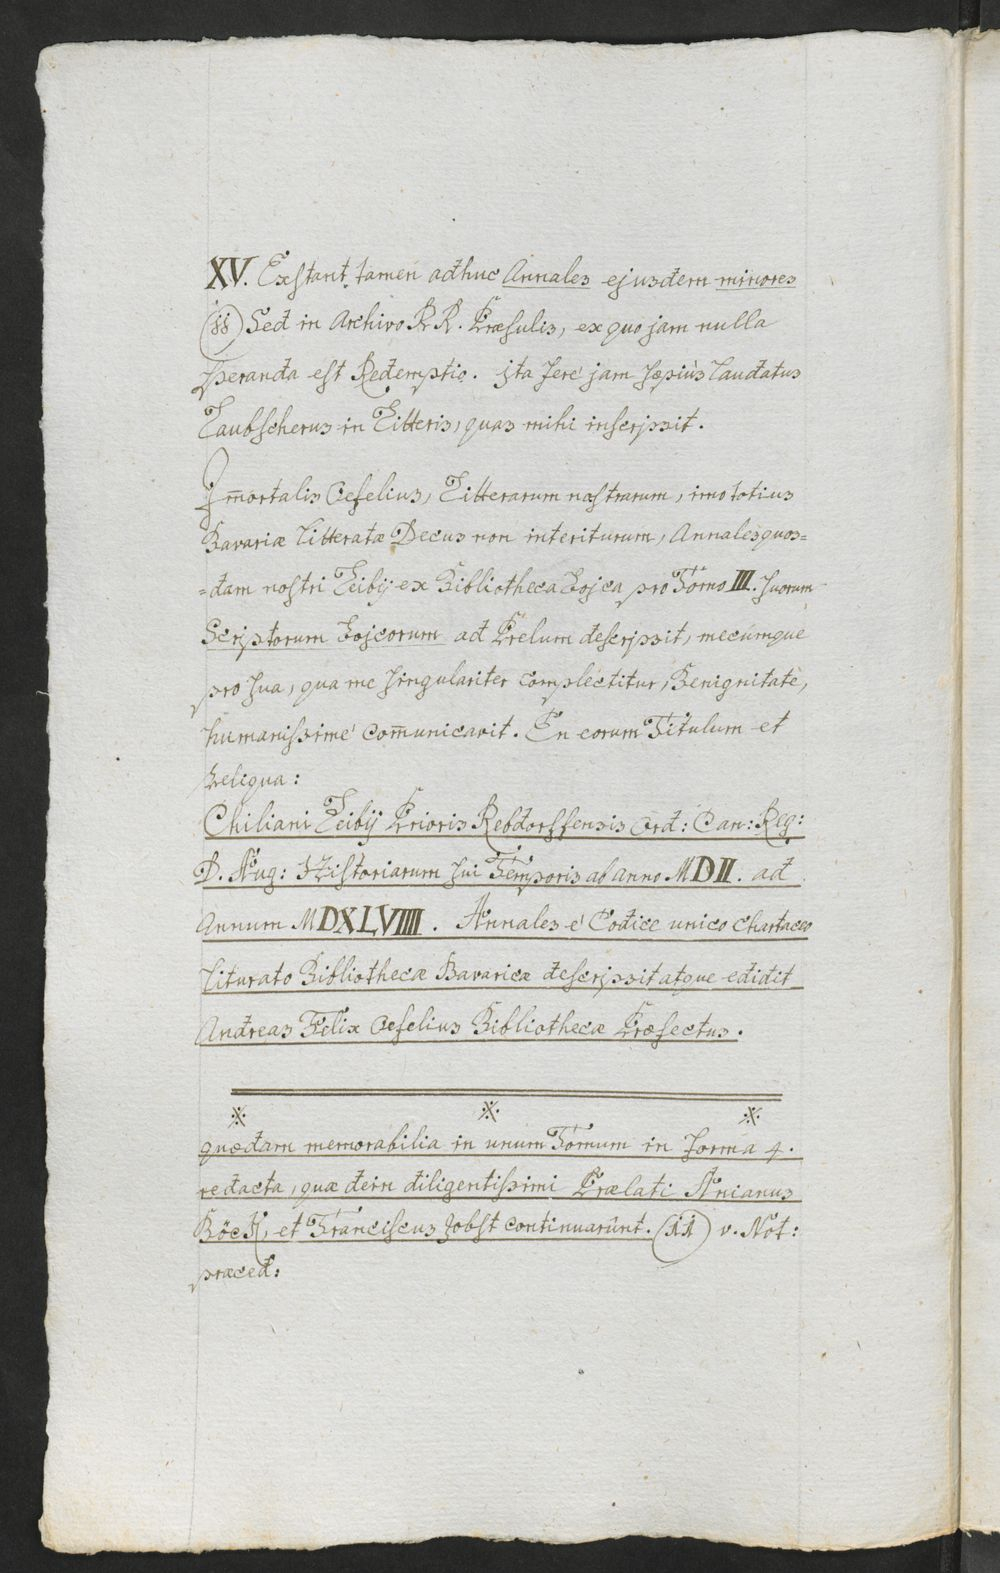 XV. Exstant tamen adhuc Annales ejusdem minores
(§§) Sed in Archivo R R. Præsulis, ex quo jam nulla
speranda est Redemptio. Ita ferè jam sæpiùs laudatus
Taubscherus in Litteris, quas mihi inscripsit.
Im̄ortalis Oefelius, Litterarum nostrarum, imo totius
Bavariæ litteratæ Decus non interiturum, Annales quos=
=dam nostri Leibij ex Bibliotheca Bojca pro Tomo III. suorum
Scriptorum Bojcorum ad Prelum descripsit, mecúmque
pro sua, qua me singulariter complectitur, Benignitate,
humanissimè com̄unicavit. En eorum Titulum et
Reliqua:
Chiliani Leibij Prioris Rebdorffensis Ord: Can: Reg:
D. Aug: Historiarum sui Temporis ab anno MDII. ad
Annum MDXLVIIII. Annales è Codice unico Chartaceo
liturato Bibliothecæ Bavaricæ descripsit atque edidit
Andreas Felix Oefelius Bibliothecæ Præfectus.
※ ※ ※
quædam memorabilia in unum Tomum in forma 4.
redacta, quæ dein diligentissimi Prælati Anianus
Böck, et Franciscus Jobst continuarûnt. v. Not:
præced: